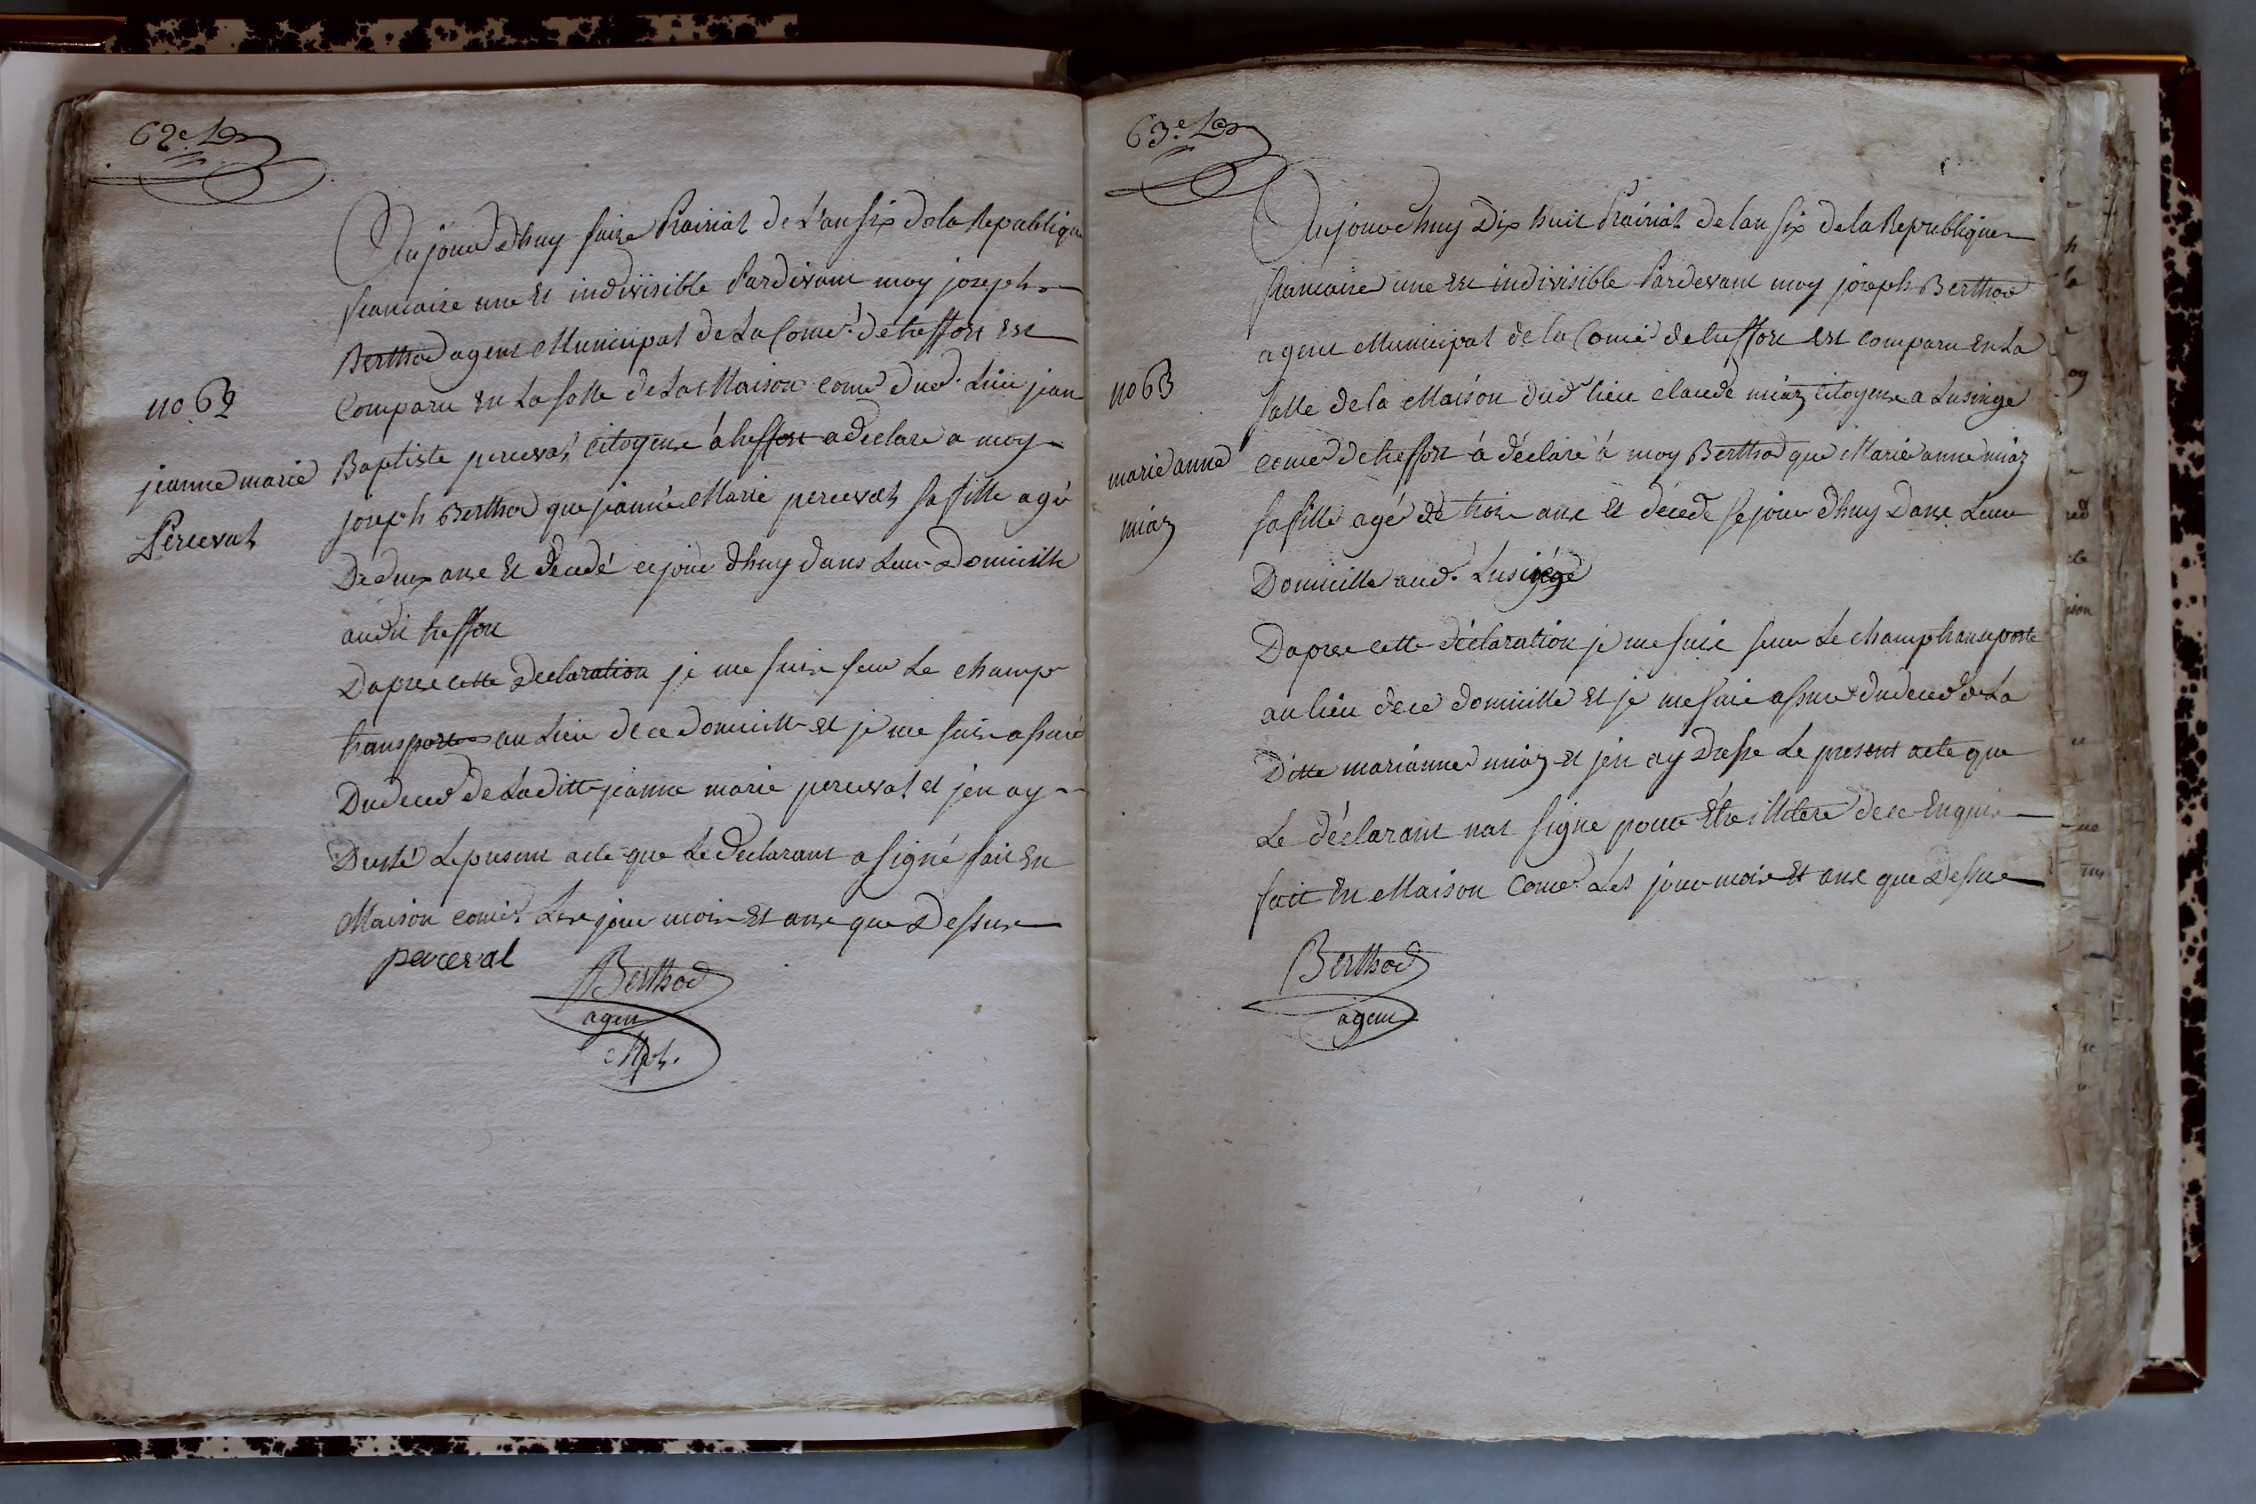 62e
Aujourdhuy saize Prairial de L'an six de la Republique
francaise une et indivisible Pardevant moy joseph
Berthod agent Municipal de La Come de treffort est
no 62
Comparu en La salle de La Maison come dud. Lieu jean
jeanne marie
Baptiste perceval citoyens à treffort a declare a moy
Perceval
joseph Berthod que jeanne Marie perceval sa fille agé
De deux ans et décedé ce jour dhuy dans Leur Domicille
audit treffort
Dapres cette Declaration je me suis seur Le champ
transporte au Lieu de ce domicille et je me suis assuré
Du deced de Laditte jeanne marie perceval et jen ay
Dressé Le present acte que Le declarant a signé fait en
Maison come Les jour mois et ans que Dessus
perceval
Berthod
agent
Mpal.
63e
Aujourdhuy Dix huit Prairial de lan six de la Republique
francaise une et indivisible Pardevant moy joseph Berthod
agent Municipal de la Come de treffort est comparu en La
no 63
salle de la Maison dud lieu claude miaz citoyens a Lusinge
marie anne
come de treffort à déclaré à moy Berthod que Marie anne miaz
miaz
sa fille agé de trois ans et décede se jour dhuy Dans Leur
Domicille aud.
Dapres cette déclaration je me suis seur Le champ transporte
au lieu de ce domicille et je me suis assure du deced de La
Ditte marianne miaz et jen ay Dresse Le present acte que
Le déclarant nat signe pour Etre illitere de ce Enquis
fait en Maison Come. Les jour mois et ans que Dessus
Berthod
agent